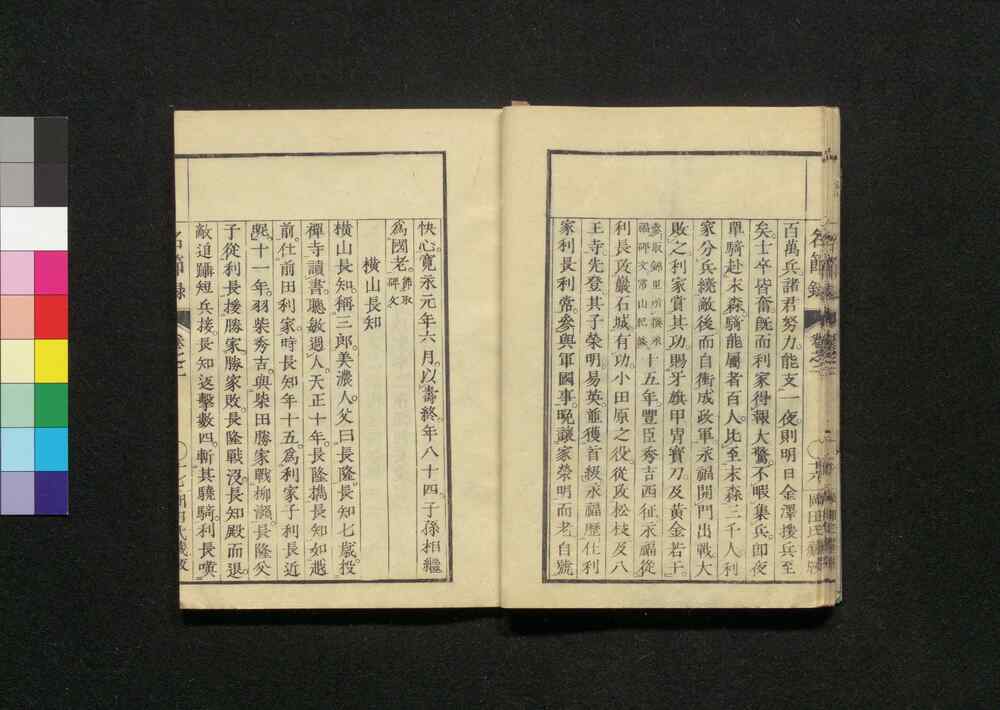 百萬兵諸君努力能支一夜則明日金澤援兵至
矣士卒皆奮既而利家得報大驚不暇集兵即夜
單騎赴末森騎能屬者百人比至末森三千人利
家分兵繞敵後而自衝成政軍永福開門出戰大
敗之利家賞其功賜牙旗甲冑寶刀及黃金若干
參取錦里所撰永
福碑文常山紀談
十五年豐臣秀吉西征永福從
利長攻巖石城有功小田原之役從攻松枝及八
王寺先登其子榮明易英並獲首級永福歷仕利
家利長利常參與軍國事晚讓家榮明而老自號
名節錄 卷之二 岡田氏藏版
快心寬永元年六月以壽終年八十四子孫相繼
為國老
節取
碑文
橫山長知
橫山長知稱三郎美濃人父曰長隆長知七歲投
禪寺讀書聰敏過人天正十年長隆攜長知如越
前仕前田利家時長知年十五為利家子利長近
臣十一年羽柴秀吉與柴田勝家戰柳瀨長隆父
子從利長援勝家勝家敗長隆戰沒長知殿而退
敵追躡短兵接長知返擊數四斬其驍騎利長嘆
名節錄 卷之二